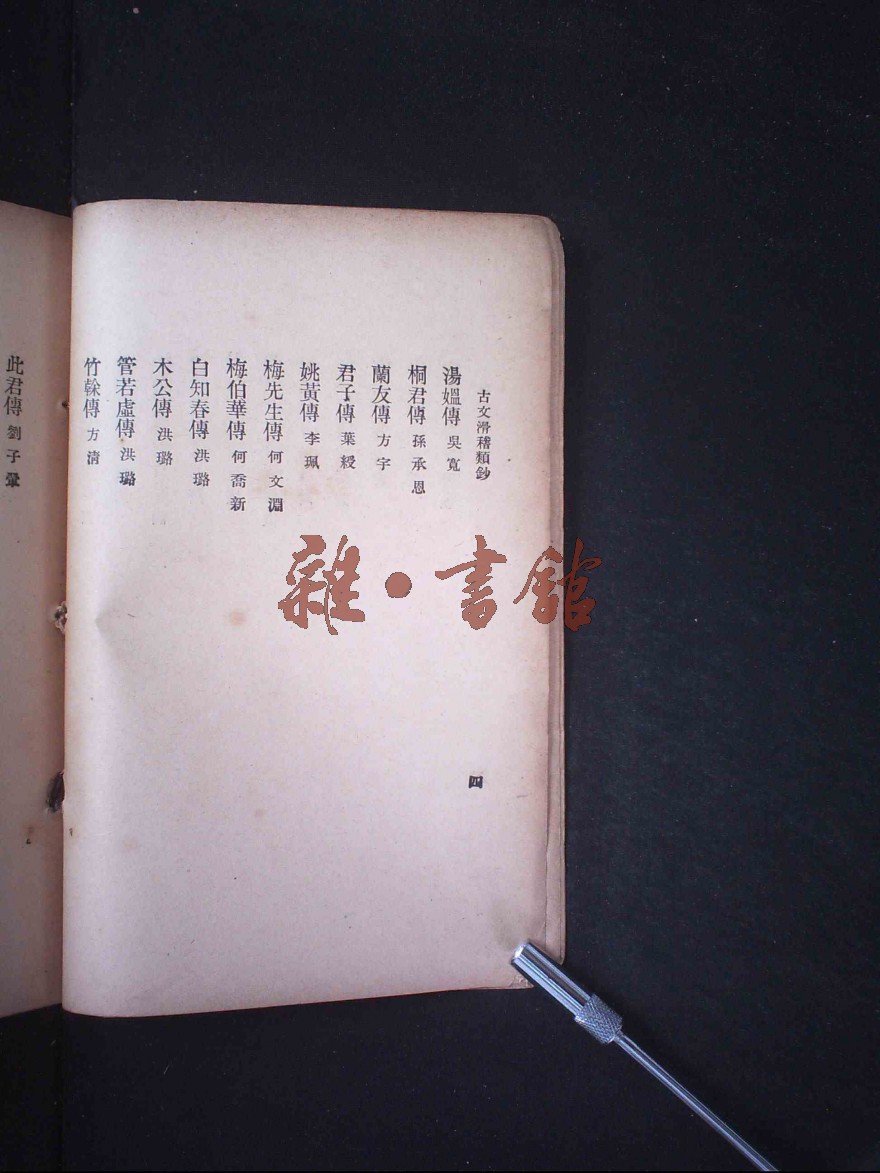 古文滑稽類鈔
湯媼傳 吳寬
桐君傳 孫承恩
蘭友傳 方宇
君子傳 葉綬
姚黃傳 李珮
梅先生傳 何文淵
梅伯華傳 何喬新
白知春傳 洪璐
木公傳 洪璐
管若虛傳 洪璐
竹䌠傳 方清
四
此君傳 劉子翬
雜·書館